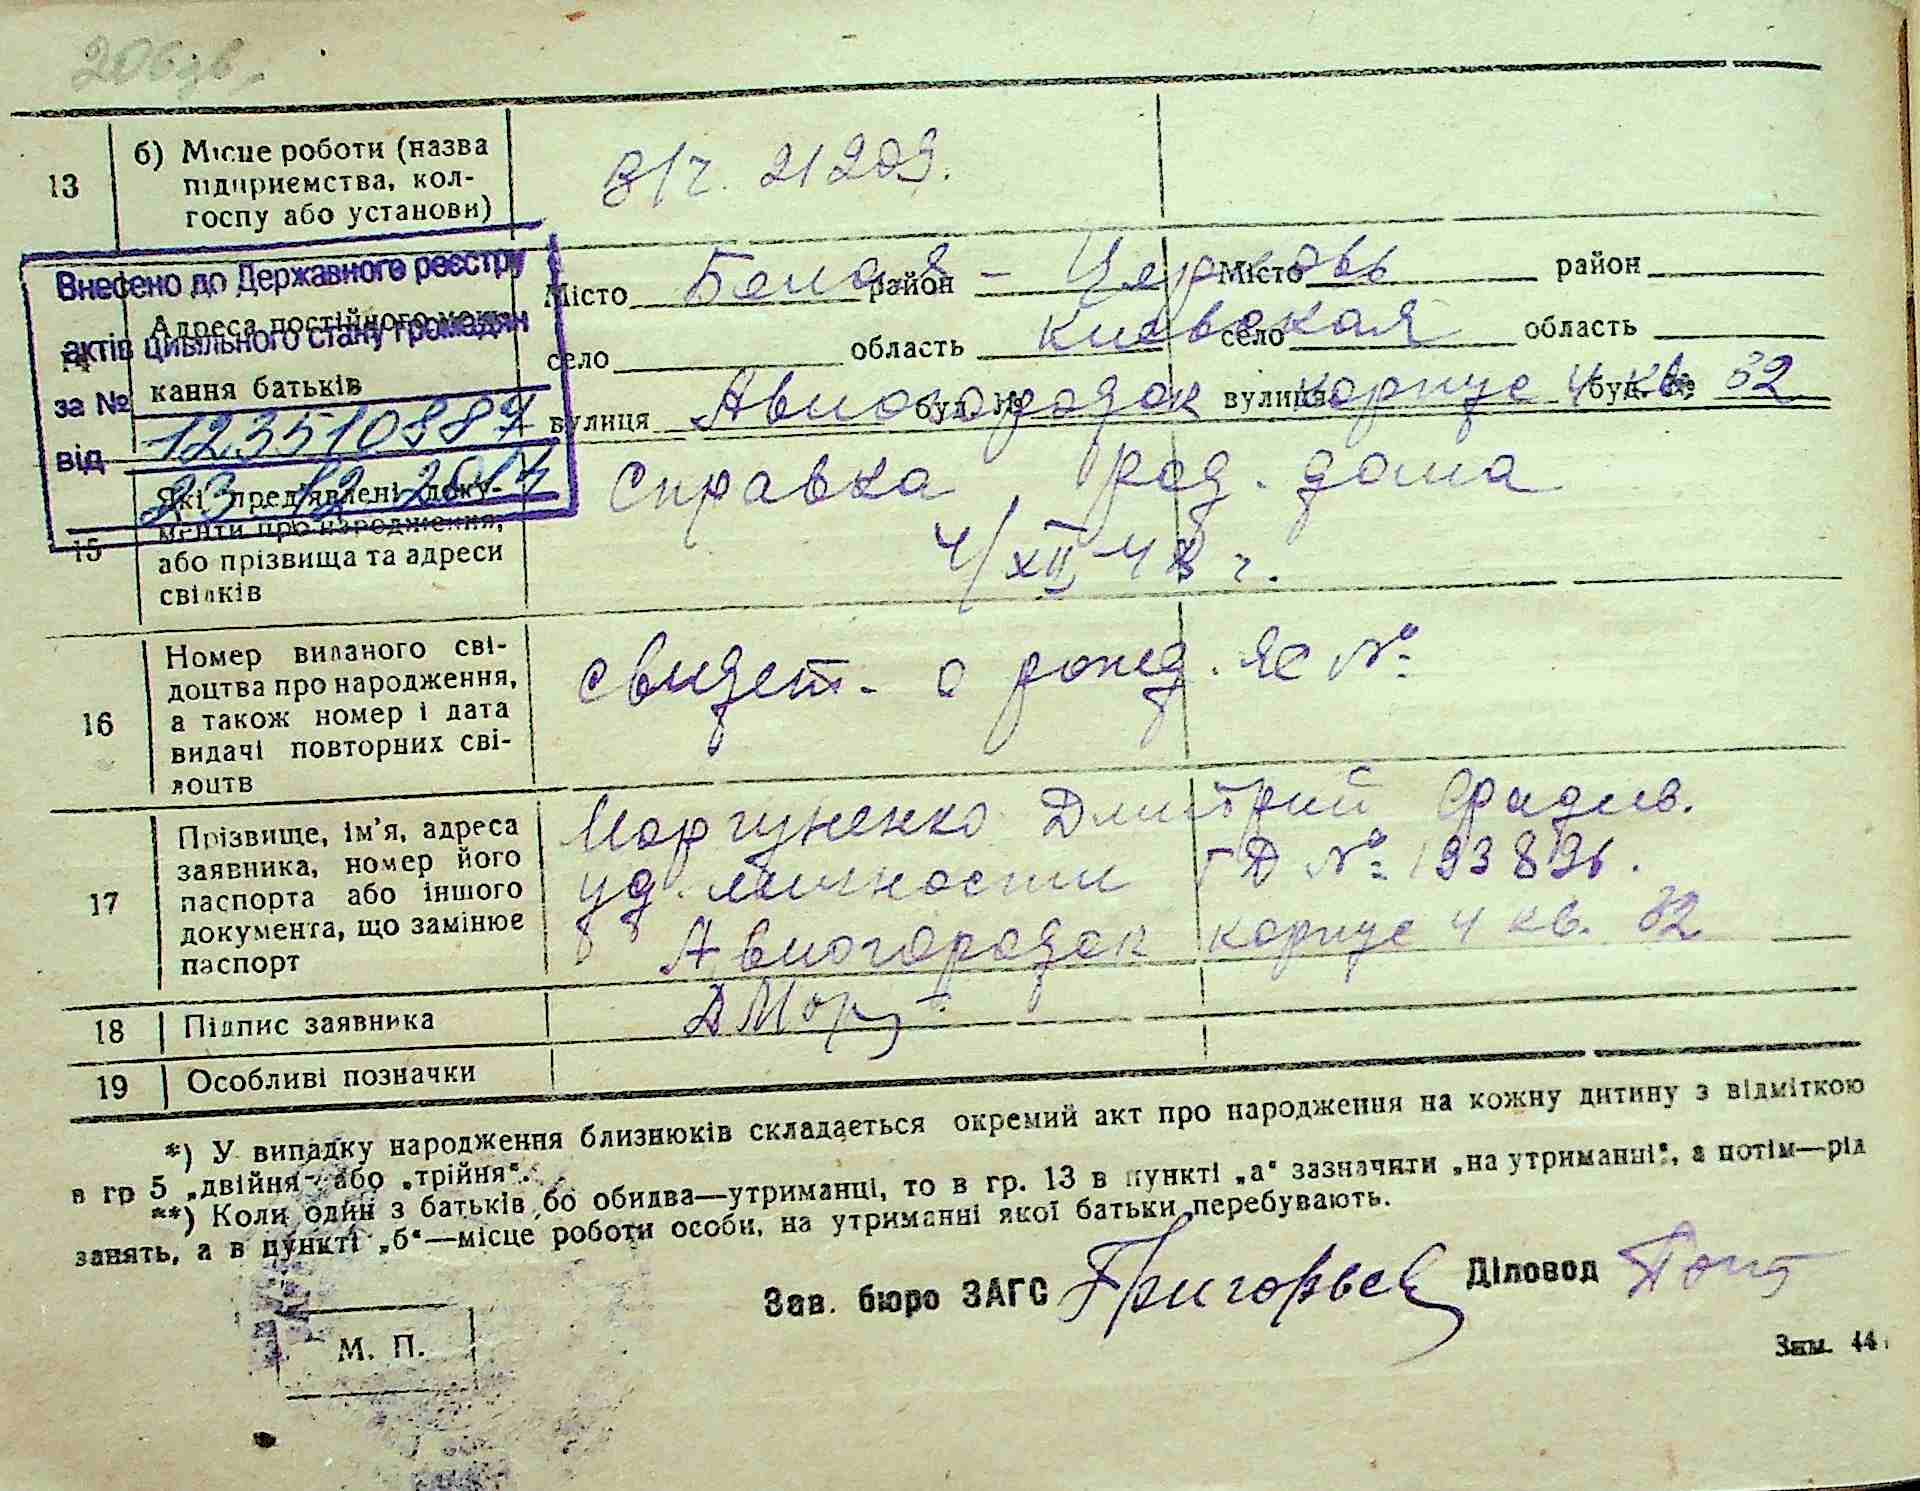 13
б) Місце роботи (назва
підприємства, кол-
госпу або установи)
в/ч. 21209.
Внесено до Державного реєстру
актів цивільного стану громадян
за №
123510889
від 23 12 2014
14
Адреса постійного меш-
кання батьків
Місто Белая - район Церковь Місто район
село область Киевская село область
вулиця Авиогородок буд. № вулиця корпус 4 кв. буд. № 32
15
Які пред'явлені доку-
менти про народження,
або прізвища та адреси
свідків
Справка род. дома
4/XII 48 г.
16
Номер виданого сві-
доцтва про народження,
а також номер і дата
видачі повторних сві-
доцтв
свидет. о рожд. ЯС №
17
Прізвище, ім'я, адреса
заявника, номер його
паспорта або іншого
документа, що замінює
паспорт
Моргуненко Дмитрий
уд. личности ГД № 193896.
Авиогородок корпус 4 кв. 32
18
Підпис заявника
ДМорг
19
Особливі позначки
*) У випадку народження близнюків складається окремий акт про народження на кожну дитину з відміткою
в гр 5 „двійня“ або „трійня“.
**) Коли один з батьків бо обидва—утриманці, то в гр. 13 в пункті „а“ зазначити „на утриманні“, а потім—рід
занять, а в пункті „б“—місце роботи особи, на утриманні якої батьки перебувають.
Зав. бюро ЗАГС Григорьев Діловод
М. П.
Зам. 44